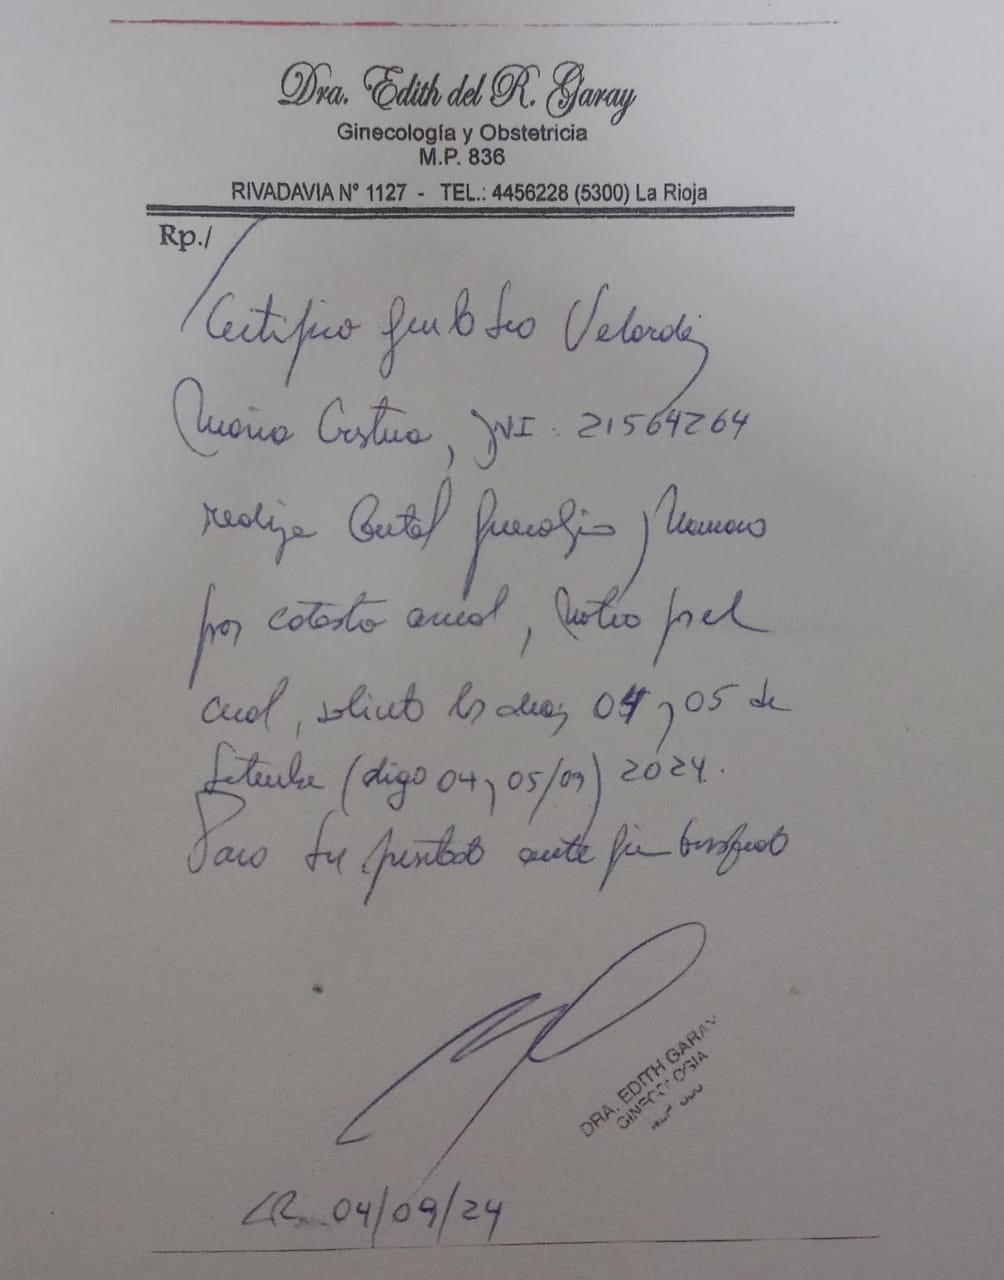 Dra. Edith del R. Garay
Ginecología y Obstetricia
M.P. 836
RIVADAVIA N° 1127 - TEL.: 4456228 (5300) La Rioja
Rp./
Certifico que la Sra Velarde
Maria Cristina, DNI: 21564264
realiza Control Ginecologico y Mamario
por catastro anual, motivo por el
cual, solicito los dias 04 y 05 de
Setiembre (digo 04 y 05/09) 2024.
Para ser presentado ante quien corresponda
DRA. EDITH GARAY
GINECOLOGIA
LR 04/09/24